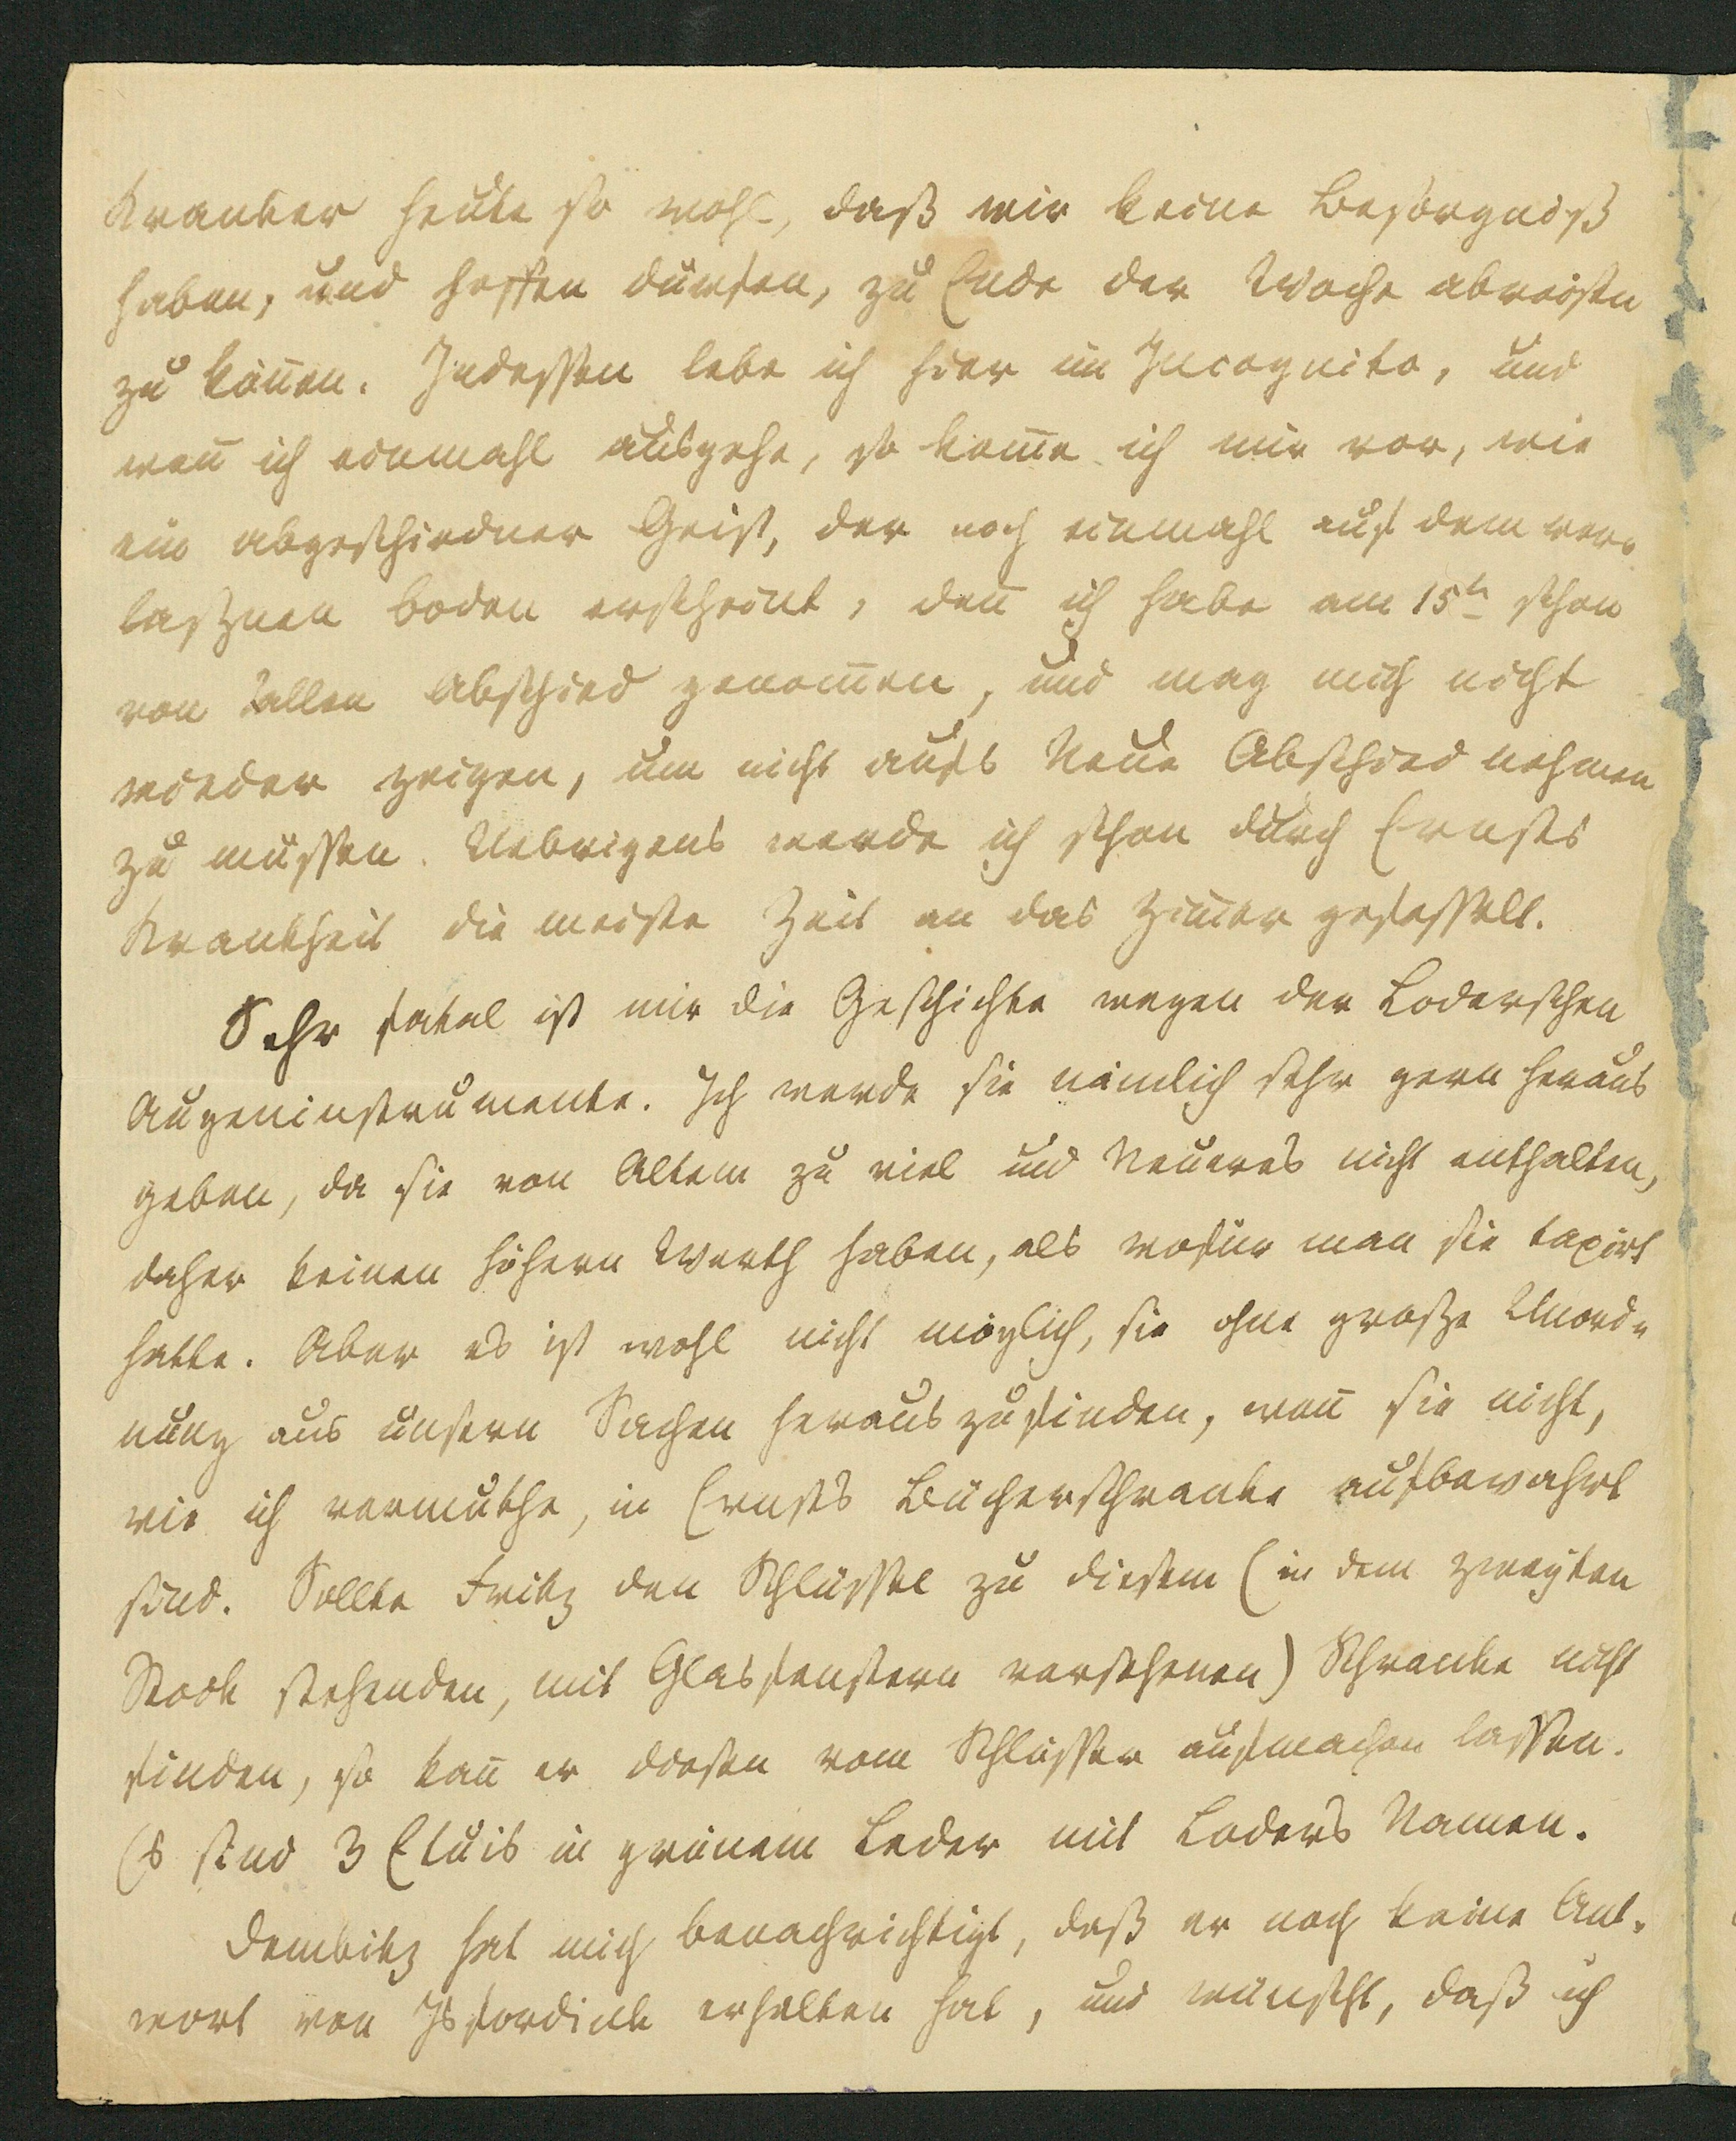 Kranker heute so wohl, daß wir keine Besorgniß
haben, und hoffen dürfen, zu Ende der Woche abreisen
zu kön̅en. Indessen lebe ich hier im Incognito, und
wen̅ ich einmahl ausgehe, so kom̅e ich mir vor, wie
ein abgeschiedner Geist, der noch einmahl auf dem ver-
laßnen Boden erscheint, den̅ ich habe am 15t schon
von allen Abschied genom̅en, und mag mich nicht
wieder zeigen, um nicht aufs Neue Abschied nehmen
zu müssen. Uebrigens werde ich schon durch Ernsts
Krankheit die meiste Zeit an das Zim̅er gefesselt.
Sehr fatal ist mir die Geschichte wegen der Loderschen
Augeninstrumente. Ich werde sie nämlich sehr gern heraus
geben, da sie von Altem zu viel und Neueres nicht enthalten,
daher keinen höhern Werth haben, als wofür man sie taxirt
hatte. Aber es ist wohl nicht möglich, sie ohne große Unord-
nung aus unsern Sachen herauszufinden, wen̅ sie nicht,
wie ich vermuthe, in Ernst's Bücherschranke aufbewahrt
sind. Sollte Fritz den Schlüssel zu diesem (in dem zweyten
Stock stehenden, mit Glasfenstern versehenen) Schranke nicht
finden, so kan̅ er diesen vom Schlosser aufmachen lassen.
Es sind 3 Etuis in grünem Leder mit Loder's Namen.
Dembitz hat mich benachrichtigt, daß er noch keine Ant-
wort von Isfordink erhalten hat, und wünscht, daß ich